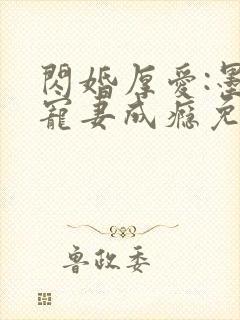 閃婚厚愛:墨
寵妻成癮免
魯政委